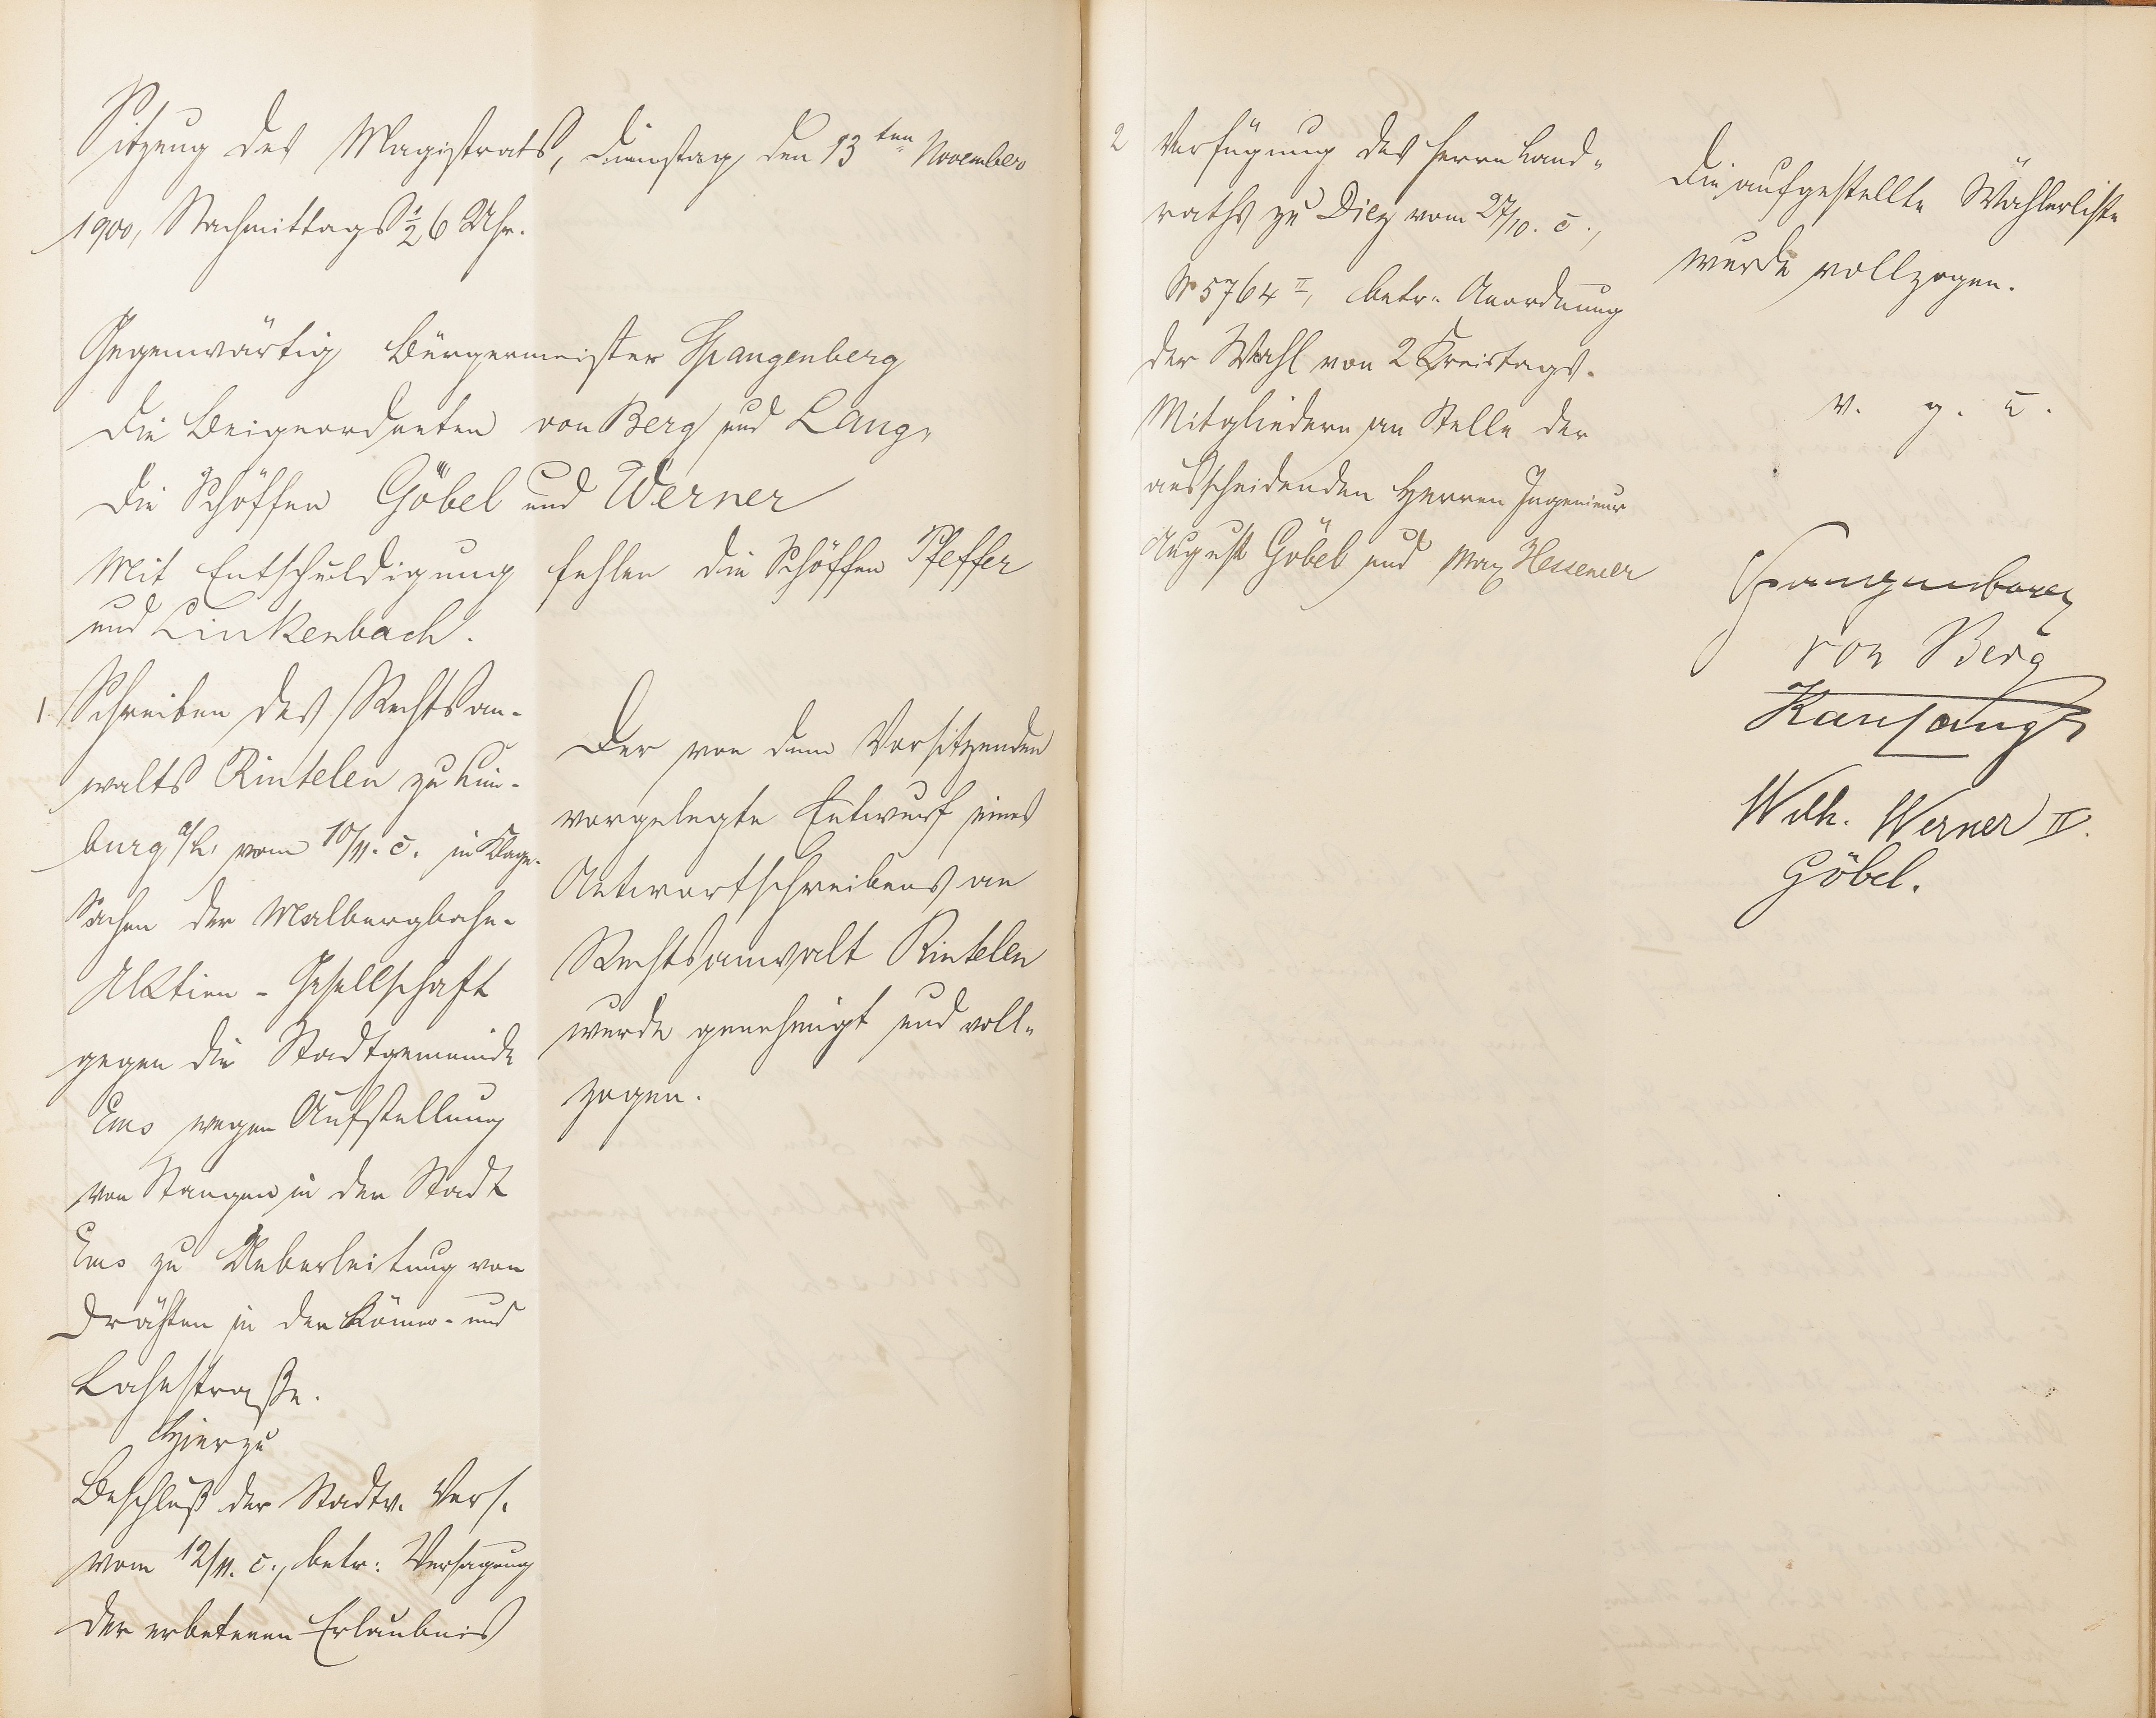 Sitzung des Magistrats, Dienstag, den 13ten November
1900, Nachmittags ½6 Uhr.
Gegenwärtig Bürgermeister Spangenberg
die Beigeordneten von Berg und Lang,
die Schöffen Göbel und Werner
Mit Entschuldigung fehlen die Schöffen Pfeffer
und Linkenbach.
1. Schreiben des Rechtsan-
walts Rintelen zu Lim-
burg a/L. vom 10/11. c. in Klage-
Sachen der Malbergbahn-
Aktien-Gesellschaft
gegen die Stadtgemeinde
Ems wegen Aufstellung
von Stangen in der Stadt
Ems zu Ueberleitung von
Drähten in der Römer- und
Lahnstraße.
Hierzu
Beschluß der Stadtv. Vers.
vom 12/11. c., betr: Versagung
der erbetenen Erlaubnis
Der von dem Vorsitzenden
vorgelegte Entwurf eines
Antwortschreibens an
Rechtsanwalt Rintelen
wurde genehmigt und voll-
zogen.
2 Verfügung des Herrn Land-
raths zu Diez vom 27/10. c.,
№ 5764 II, betr. Anordnung
der Wahl von 2 Kreistags-
Mitgliedern an Stelle der
ausscheidenden Herren Ingenieur
August Göbel und Max Hessemer
Die aufgestellte Wählerliste
wurde vollzogen.
v. g. u.
Spangenberg
von Berg
Karl Lang
Wilh. Werner II.
Göbel.